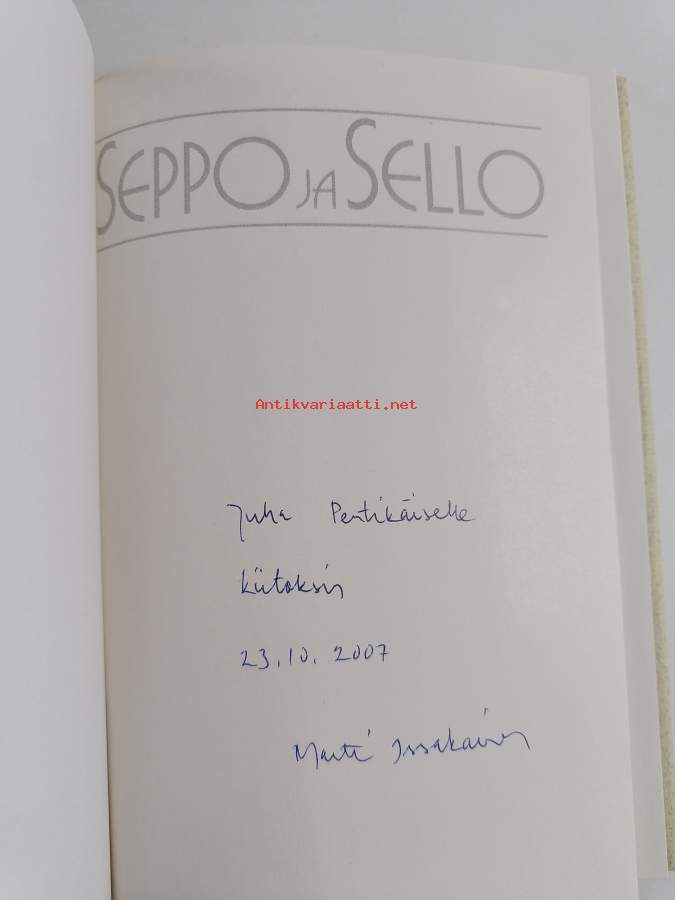 SEPPO JA SELLO
Antikvariaatti.net
Juha Pentikäiselle
kiitoksin
23.10.2007
Martti Issakainen